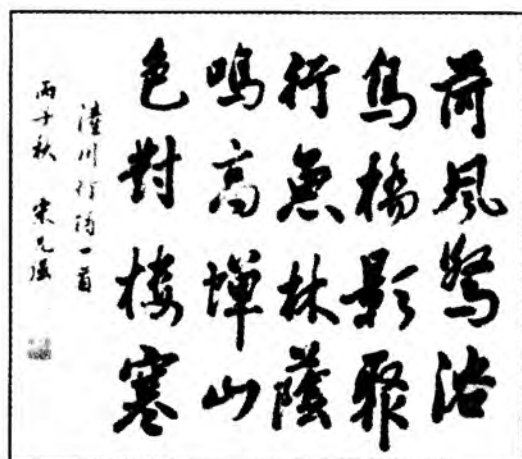 荷風驚浴
鳥橋影聚
行魚林蔭
鳴高蟬山
色對樓寒
川 一首
丙子秋 宋